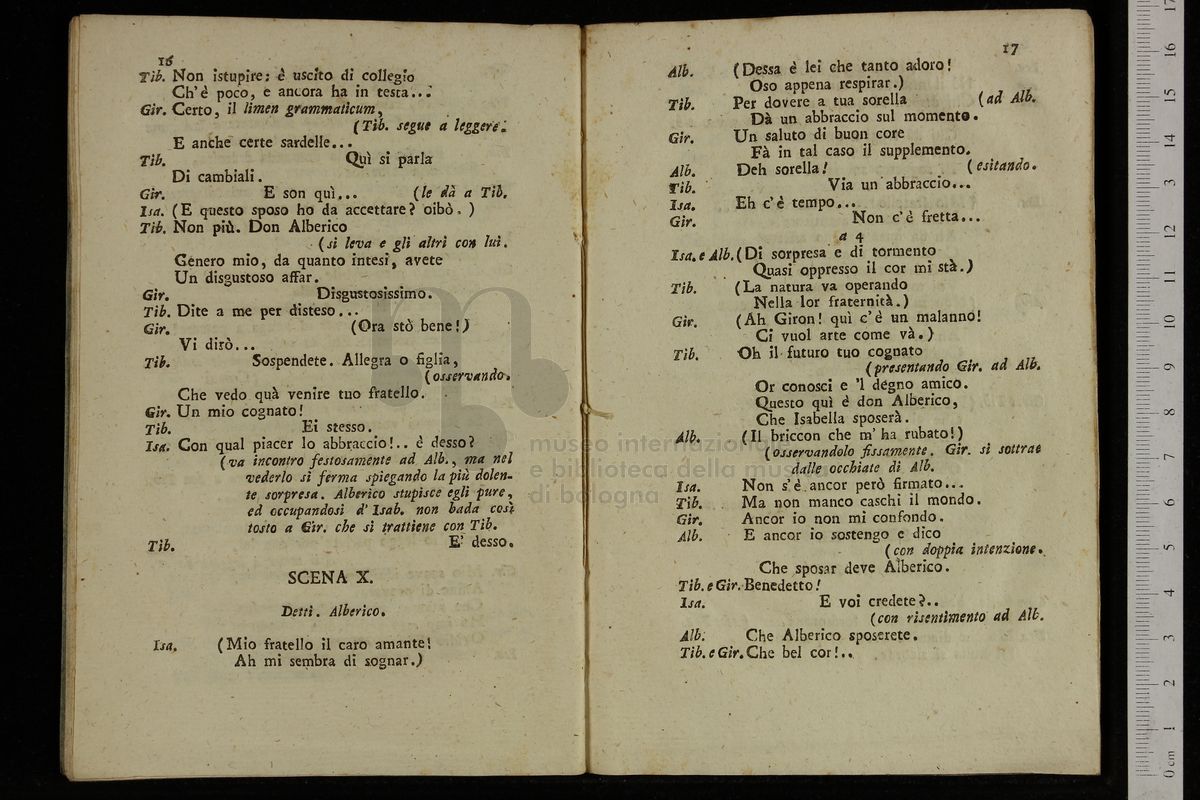 16
Tib. Non istupire: è uscito di collegio
Ch'è poco, e ancora ha in testa...
Gir. Certo, il limen grammaticum,
(Tib. segue a leggere.
E anche certe sardelle...
Tib. Quì si parla
Di cambiali.
Gir. E son quì... (le dà a Tib.
Isa. (E questo sposo ho da accettare? oibò.)
Tib. Non più. Don Alberico
(si leva e gli altri con lui.
Genero mio, da quanto intesi, avete
Un disgustoso affar.
Gir. Disgustosissimo.
Tib. Dite a me per disteso...
Gir. (Ora stò bene!)
Vi dirò...
Tib. Sospendete. Allegra o figlia,
(osservando.
Che vedo quà venire tuo fratello.
Gir. Un mio cognato!
Tib. Ei stesso.
Isa. Con qual piacer lo abbraccio!.. è desso?
(va incontro festosamente ad Alb., ma nel
vederlo si ferma spiegando la più dolen-
te sorpresa. Alberico stupisce egli pure,
ed occupandosi d'Isab. non bada così
tosto a Gir. che si trattiene con Tib.
Tib. E' desso.
SCENA X.
Detti. Alberico.
Isa. (Mio fratello il caro amante!
Ah mi sembra di sognar.)
17
Alb. (Dessa è lei che tanto adoro!
Oso appena respirar.)
Tib. Per dovere a tua sorella (ad Alb.
Dà un abbraccio sul momento.
Gir. Un saluto di buon core
Fà in tal caso il supplemento.
Alb. Deh sorella! (esitando.
Tib. Via un abbraccio...
Isa. Eh c'è tempo...
Gir. Non c'è fretta...
a 4
Isa. e Alb. (Di sorpresa e di tormento
Quasi oppresso il cor mi stà.)
Tib. (La natura va operando
Nella lor fraternità.)
Gir. (Ah Giron! quì c'è un malanno!
Ci vuol arte come và.)
Tib. Oh il futuro tuo cognato
(presentando Gir. ad Alb.
Or conosci e 'l degno amico.
Questo quì è don Alberico,
Che Isabella sposerà.
Alb. (Il briccon che m'ha rubato!)
(osservandolo fissamente. Gir. si sottrae
dalle occhiate di Alb.
Isa. Non s'è ancor però firmato...
Tib. Ma non manco caschi il mondo.
Gir. Ancor io non mi confondo.
Alb. E ancor io sostengo e dico
(con doppia intenzione.
Che sposar deve Alberico.
Tib. e Gir. Benedetto!
Isa. E voi credete?..
(con risentimento ad Alb.
Alb. Che Alberico sposerete.
Tib. e Gir. Che bel cor!..
museo internazionale
e biblioteca della musica
di bologna
0 cm 1 2 3 4 5 6 7 8 9 10 11 12 13 14 15 16 17